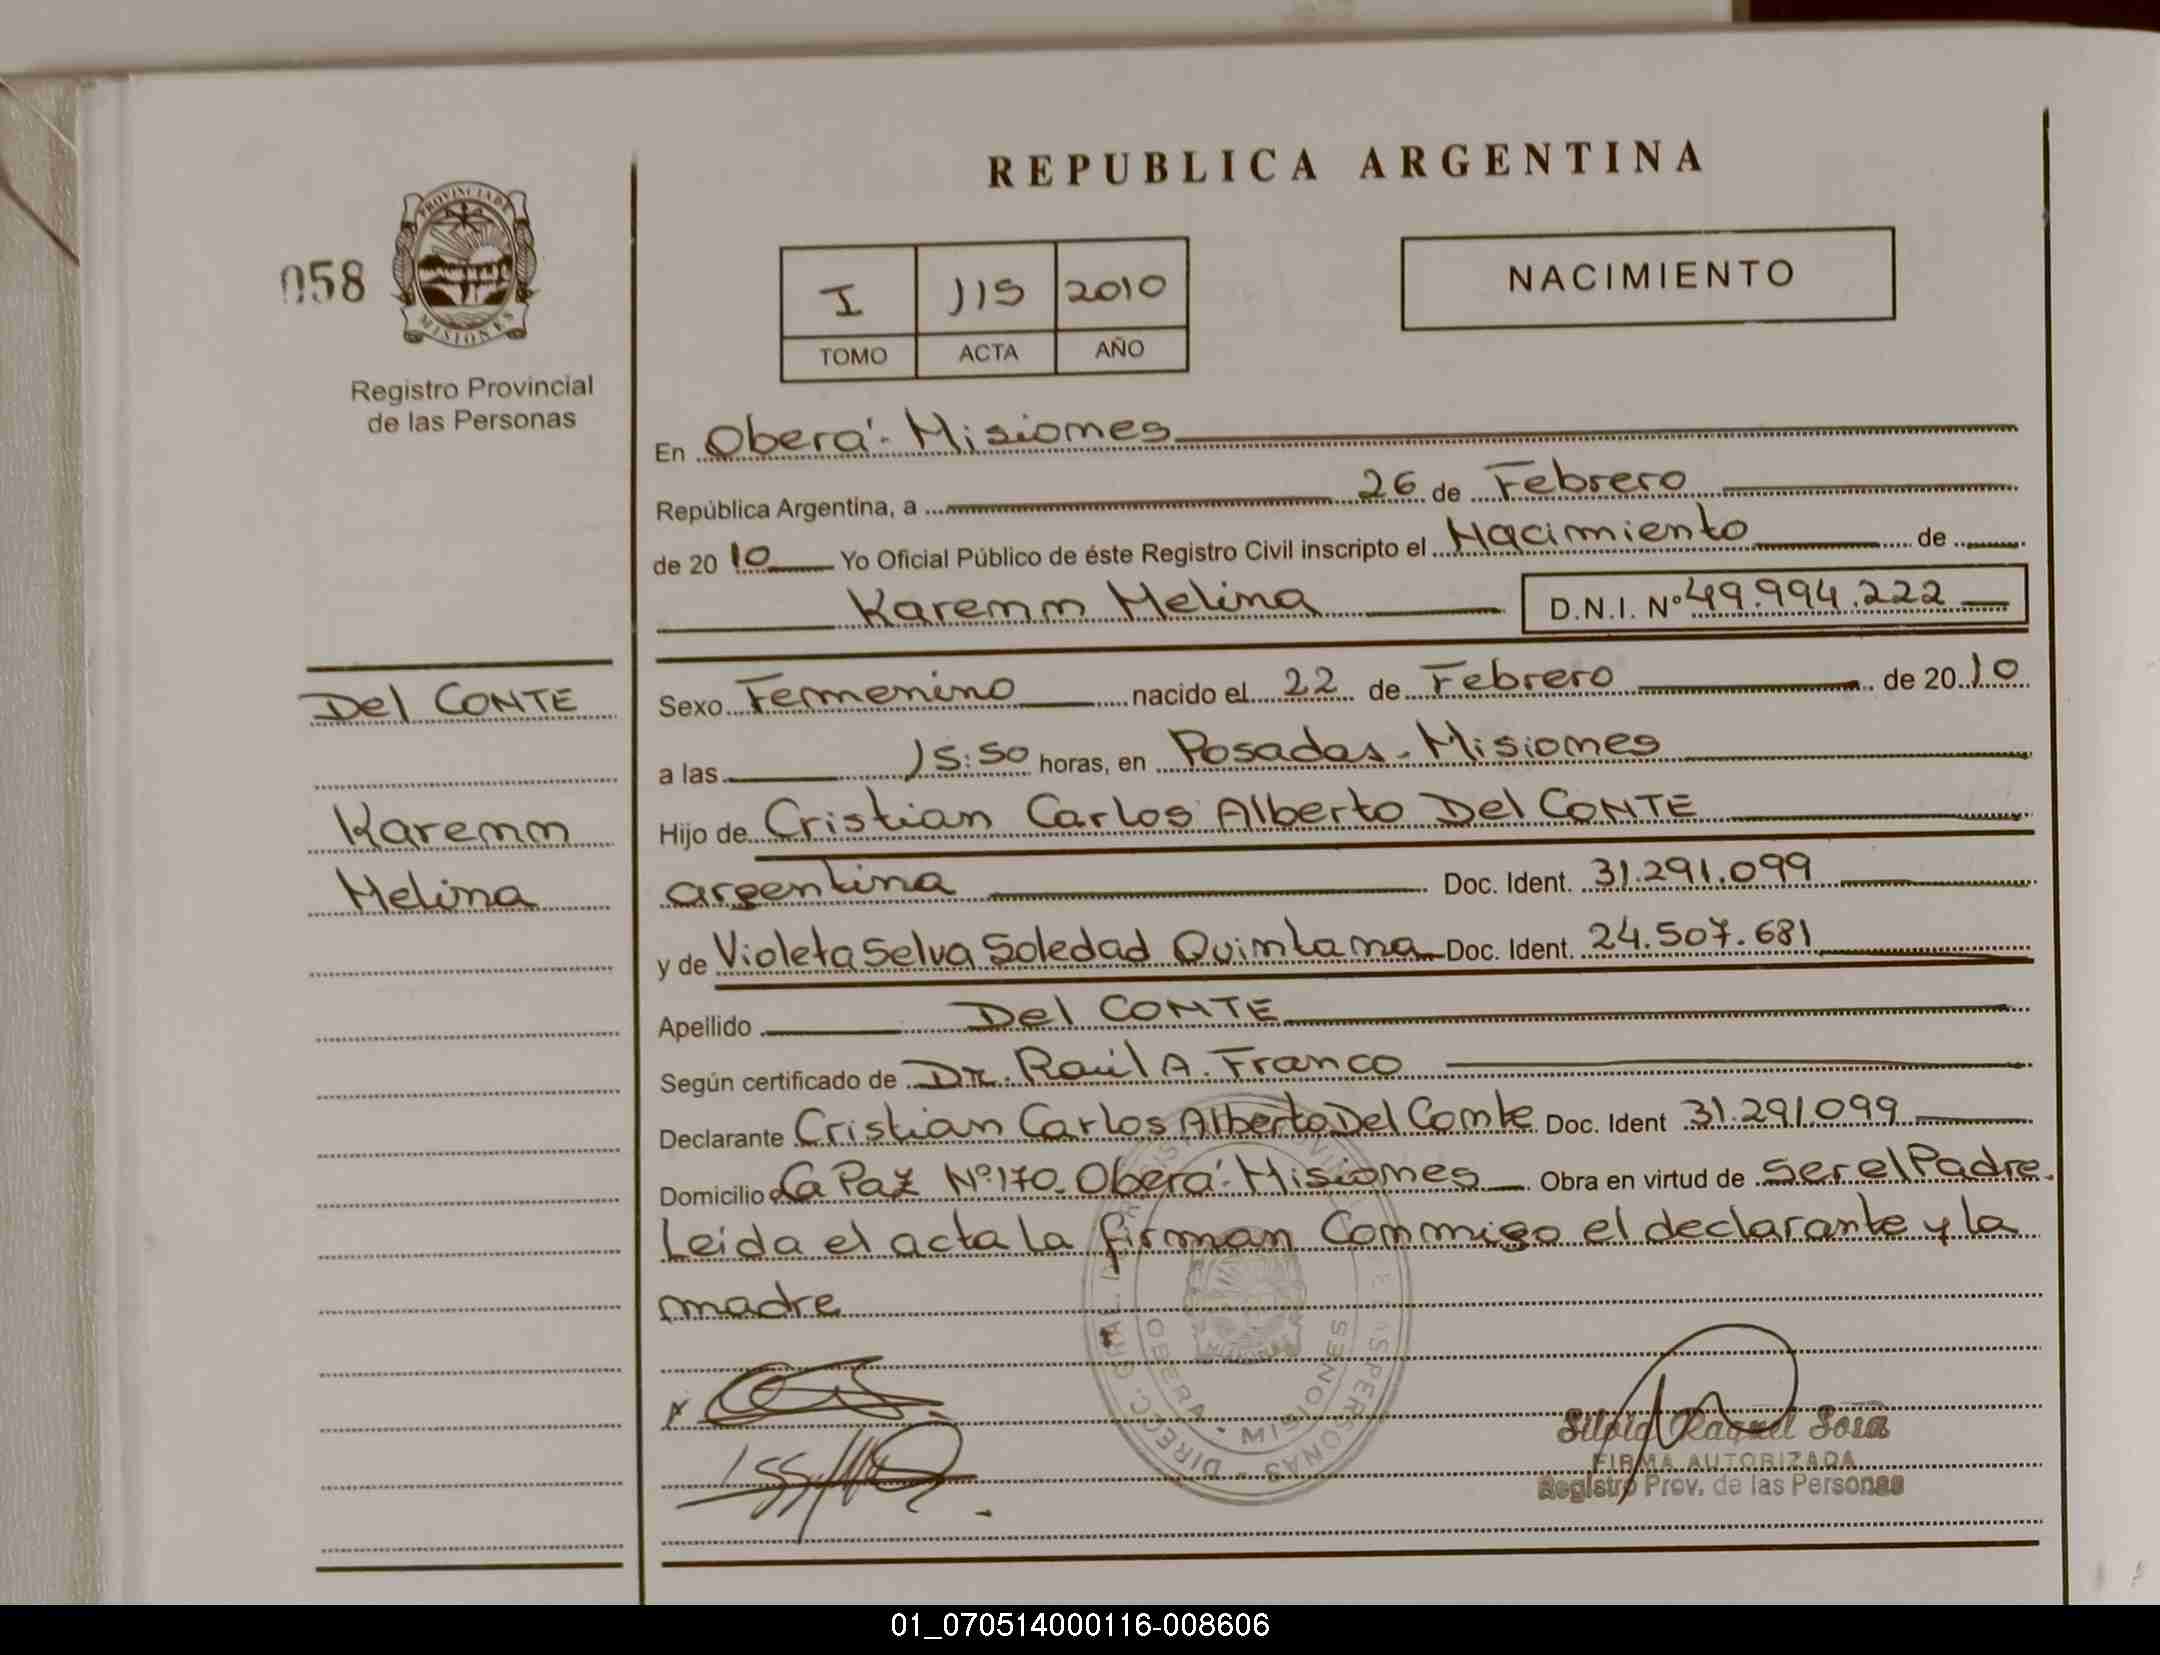 REPUBLICA ARGENTINA
058
PROVINCIA DE
MISIONES
Registro Provincial
de las Personas
I 115 2010
TOMO ACTA AÑO
NACIMIENTO
En Oberá - Misiones
República Argentina, a 26 de Febrero
de 2010 Yo Oficial Público de éste Registro Civil inscripto el Nacimiento de
Karenm Melina D.N.I. Nº 49.994.222
Del CONTE
Karenm
Melina
Sexo Femenino nacido el 22 de Febrero de 2010
a las 15:50 horas, en Posadas - Misiones
Hijo de Cristian Carlos Alberto Del CONTE
argentina Doc. Ident. 31.291.099
y de Violeta Selva Soledad Quintana Doc. Ident. 24.507.681
Apellido Del CONTE
Según certificado de Dr. Raúl A. Franco
Declarante Cristian Carlos Alberto Del Conte Doc. Ident 31.291.099
Domicilio La Paz Nº 170 - Oberá - Misiones Obra en virtud de Ser el Padre.
Leida el acta la firman Conmigo el declarante y la
madre
OBERA - MISIONES
Silvia Raquel Sosa
FIRMA AUTORIZADA
Registro Prov. de las Personas
01_070514000116-008606